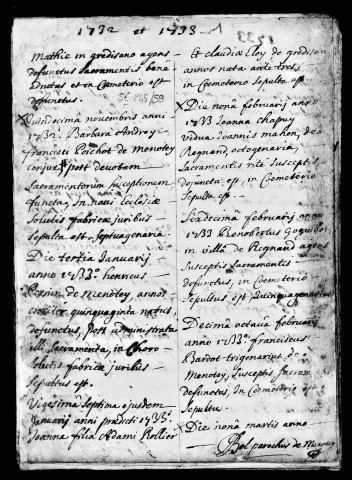 1732 et 1733
1733
Mathie in gredisano agens
defunctus Sacramentis bene
et in Cœmeterio est
defunctus.
5E 245/59
Quindecima novembris anni
1732. Barbara Andrey
francisci Poichot de Menotey
conjux post devotam
Sacramentorum susceptionem
functa, In navi Ecclesiæ
solutis fabricæ juribus
sepulta est, septuagenaria.
Die tertia Januarii
anno 1733. henricus
de Menotey, annos
circiter quinquaginta natus,
defunctus, post administrata
Sacramenta, in choro
solutis fabricæ juribus
sepultus est.
Vigesima septima ejusdem
Januarii anni prædicti 1733.
Joanna filia Adami Rollier
Et claudiæ Cloy de gredisan
annos nata ante tres,
in Cœmeterio sepulta est.
Die nona februarii anno
1733 Joanna chapuy
vidua Joannis mahon, de
Regnand octogenaria,
Sacramentis rite susceptis
defuncta est, in Cœmeterio
sepulta est.
Sexdecima februarii anno
1733
in villa de Regnand agens
susceptis sacramentis
defunctus, in cœmeterio
sepultus est quinquagenarius
Decima octava februarii
anno 1733. franciscus
Bardot trigenarius de
Menotey, susceptis sacram
defunctus, in Cœmeterio est
sepultus
Die nona martis anno
parochus de Menotey